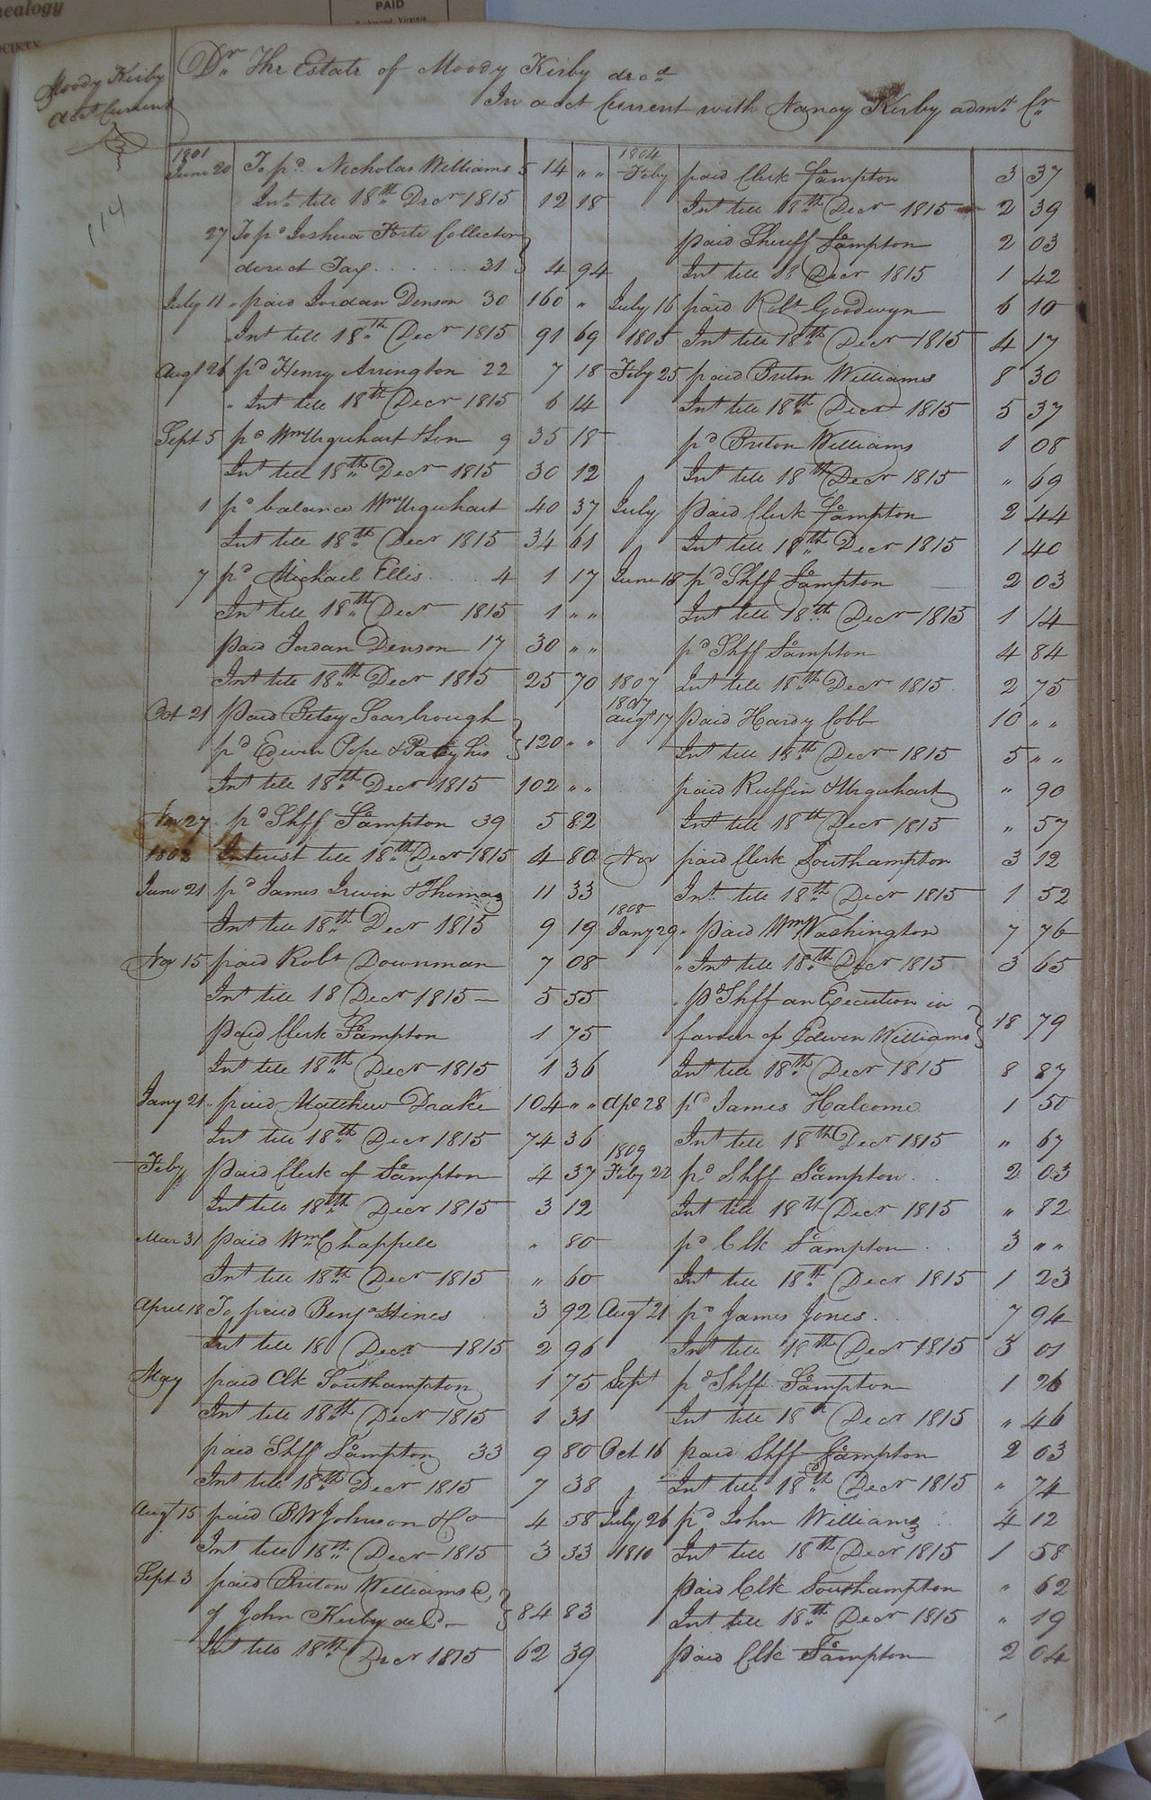 nealogy
PAID
Richmond, Virginia
Moody Kirby
acct Current
114
Dr. The Estate of Moody Kirby decd
In acct Current with Nancy Kirby admx Cr
1801
June 20 To pd. Nicholas Williams 5 14 " "
Int. till 18th Decr 1815 12 18
27 To pd Joshua Forte Collector
direct Tax 31 4 94
July 11 " paid Jordan Denson 30 160 "
Int till 18th Decr 1815 91 69
Augt 26 pd Henry Arrington 22 7 18
" Int till 18th Decr 1815 6 14
Sept 5 pd Wm Urquhart & Son 9 35 18
Int till 18th Decr 1815 30 12
1 pd balance Wm Urquhart 40 37
Int till 18th Decr 1815 34 61
7 pd Michael Ellis 4 1 17
Int till 18th Decr 1815 1 " "
paid Jordan Denson 17 30 " "
Int till 18th Decr 1815 25 70
Oct 21 paid Betsy Scarbrough
pd Edwin Pope & Patsy his 120 " "
Int till 18th Decr 1815 102 " "
Nov 27 pd Shff S'ampton 39 5 82
1802 Interest till 18th Decr 1815 4 80
June 21 pd James Irwin & Thomas 11 33
Int till 18th Decr 1815 9 19
Nov 15 paid Robt Downman 7 08
Int till 18 Decr 1815 5 55
paid Clerk S'ampton 1 75
Int till 18th Decr 1815 1 36
Jany 21 paid Matthew Drake 104 " "
Int till 18th Decr 1815 74 36
Feby paid Clerk of S'ampton 4 37
Int till 18th Decr 1815 3 12
Mar 31 paid Wm Chappell " 80
Int till 18th Decr 1815 " 60
April 18 To paid Benja Hines 3 92
Int till 18 Decr 1815 2 96
May paid Clk Southampton 1 75
Int till 18th Decr 1815 1 31
paid Shff S'ampton 33 9 80
Int till 18th Decr 1815 7 38
Augt 15 paid B W Johnson & Co 4 58
Int till 18th Decr 1815 3 33
Sept 3 paid Briton Williams
of John Kirby decd 84 83
Int till 18th Decr 1815 62 39
1804
Feby paid Clerk S'ampton 3 37
Int till 18th Decr 1815 2 39
paid Sheriff S'ampton 2 03
Int till 18 Decr 1815 1 42
July 16 paid Robt Goodwyn 6 10
1805 Int till 18th Decr 1815 4 17
Feby 25 paid Briton Williams 8 30
Int till 18th Decr 1815 5 37
pd Briton Williams 1 08
Int till 18th Decr 1815 " 69
July paid Clerk S'ampton 2 44
Int till 18th Decr 1815 1 40
June 18 pd Shff S'ampton 2 03
Int till 18th Decr 1815 1 14
pd Shff S'ampton 4 84
1807 Int till 18th Decr 1815 2 75
1807
Augt 17 paid Hardy Cobb 10 " "
Int till 18th Decr 1815 5 " "
paid Ruffin & Urquhart " 90
Int till 18th Decr 1815 " 57
Nov paid Clerk Southampton 3 12
Int. till 18th Decr 1815 1 52
1808
Jany 29 " paid Wm Washington 7 76
" Int till 18th Decr 1815 3 65
pd Shff an Execution in
favour of Edwin Williams 18 79
Int till 18th Decr 1815 8 87
Apl 28 pd James Halcome 1 50
Int till 18th Decr 1815 " 67
1809
Feby 22 pd Shff S'ampton 2 03
Int till 18th Decr 1815 " 82
pd Clk S'ampton 3 " "
Int till 18th Decr 1815 1 23
Augt 21 pd James Jones 7 94
Int till 18th Decr 1815 3 01
Sept pd Shff S'ampton 1 26
Int till 18th Decr 1815 " 46
Oct 16 paid Shff S'ampton 2 03
Int till 18th Decr 1815 " 74
July 26 pd John Williams 4 12
1810 Int till 18th Decr 1815 1 58
paid Clk Southampton " 62
Int till 18th Decr 1815 " 19
paid Clk S'ampton 2 04